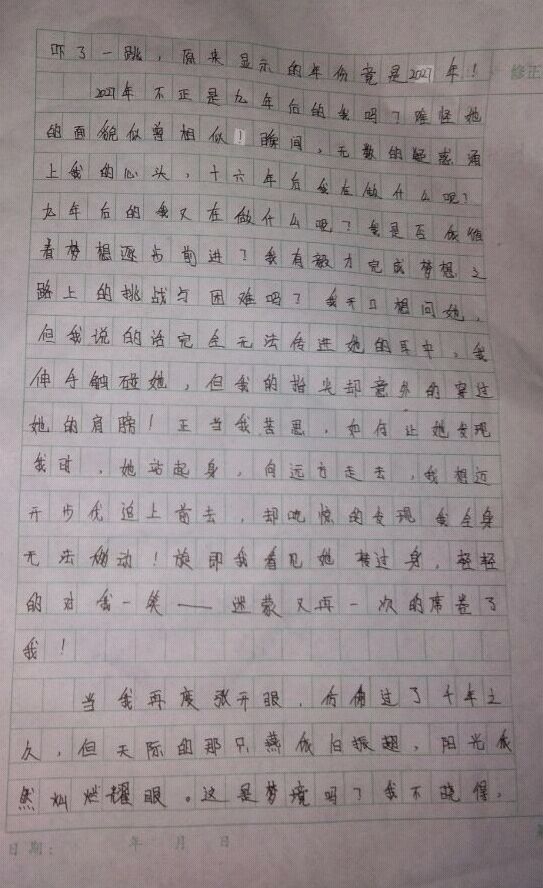 吓了一跳，原来显示的年份竟是2027年！
修正
2027年不正是九年后的我吗？难怪她
的面貌似曾相似！瞬间，无数的疑惑涌
上我的心头，十六年后我在做什么呢？
九年后的我又在做什么呢？我是否依循
着梦想逐步前进？我有毅力完成梦想之
路上的挑战与困难吗？我开口想问她，
但我说的话完全无法传进她的耳中，我
伸手触碰她，但我的指尖却意外的穿过
她的肩膀！正当我苦思，如何让她发现
我时，她站起身，向远方走去，我想迈
开步伐追上前去，却吃惊的发现我全身
无法挪动！旋即我看见她转过身，轻轻
的对我一笑——迷蒙又再一次的席卷了
我！
当我再度张开眼，仿佛过了千年之
久，但天际的那只燕依旧振翅，阳光依
然灿烂耀眼。这是梦境吗？我不晓得，
日期： 年 月 日